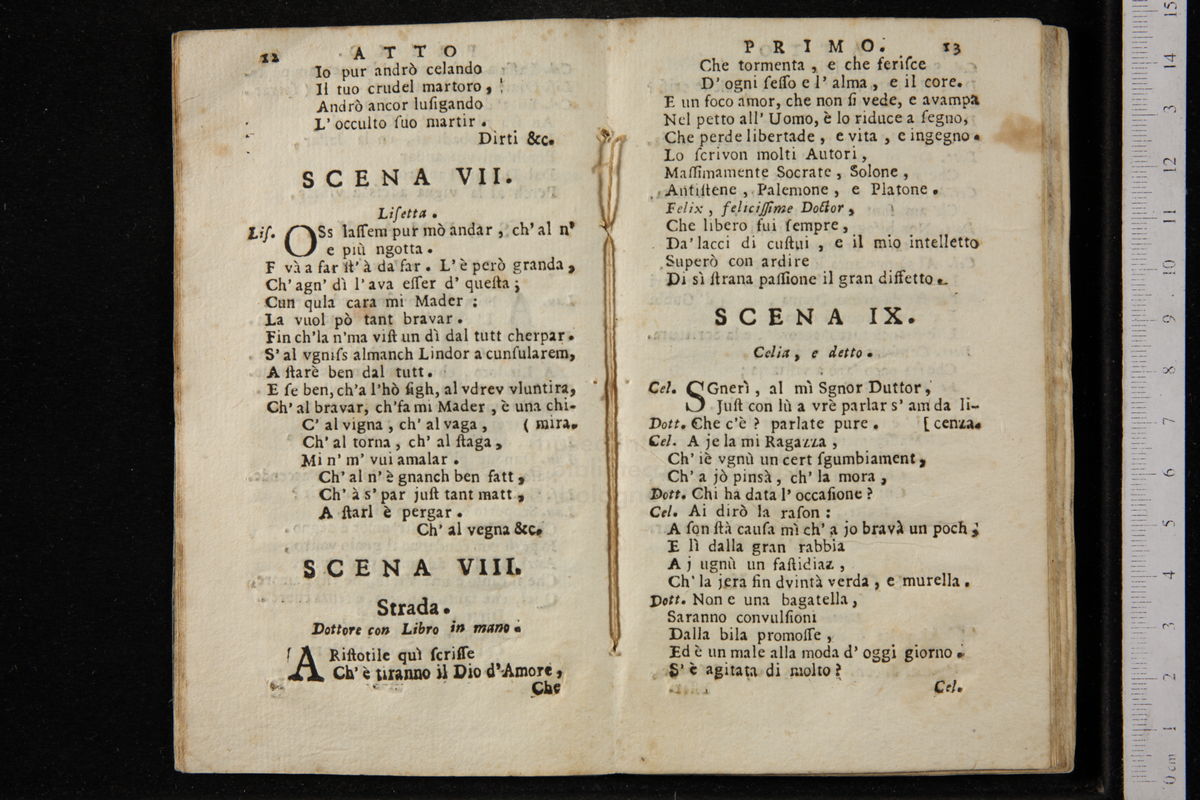 12 ATTO
Io pur andrò celando
Il tuo crudel martoro,
Andrò ancor luſigando
L' occulto ſuo martir.
Dirti &c.
SCENA VII.
Liſetta.
Liſ. OSs laſſem pur mò andar, ch' al n'
e più ngotta.
F và a far ſt' à da far. L' è però granda,
Ch' agn' dì l' ava eſſer d' queſta;
Cun qula cara mi Mader:
La vuol pò tant bravar.
Fin ch'la n'ma viſt un dì dal tutt cherpar.
S' al vgniſs almanch Lindor a cunſularem,
A ſtarè ben dal tutt.
E ſe ben, ch'a l'hò ſigh, al vdrev vluntira,
Ch' al bravar, ch'fa mi Mader, è una chi-
C' al vigna, ch' al vaga, (mira.
Ch' al torna, ch' al ſtaga,
Mi n' m' vui amalar.
Ch' al n' è gnanch ben fatt,
Ch' à s' par juſt tant matt,
A ſtarl è pergar.
Ch' al vegna &c.
SCENA VIII.
Strada.
Dottore con Libro in mano.
ARiſtotile quì ſcriſſe
Ch' è tiranno il Dio d' Amore,
Che
PRIMO. 13
Che tormenta, e che feriſce
D' ogni ſeſſo e l' alma, e il core.
E un foco amor, che non ſi vede, e avampa
Nel petto all' Uomo, è lo riduce a ſegno,
Che perde libertade, e vita, e ingegno.
Lo ſcrivon molti Autori,
Maſſimamente Socrate, Solone,
Antiſtene, Palemone, e Platone.
Felix, feliciſſime Doctor,
Che libero fui ſempre,
Da' lacci di cuſtui, e il mio intelletto
Superò con ardire
Di sì ſtrana paſſione il gran diffetto.
SCENA IX.
Celia, e detto.
Cel. SGnerì, al mì Sgnor Duttor,
Juſt con lù a vrè parlar s' am da li-
Dott. Che c'è? parlate pure. [cenza.
Cel. A je la mi Ragazza,
Ch' iè vgnù un cert ſgumbiament,
Ch' a jò pinsà, ch' la mora,
Dott. Chi ha data l' occaſione?
Cel. Ai dirò la raſon:
A ſon ſtà cauſa mì ch' a jo bravà un poch;
E lì dalla gran rabbia
A j ugnù un faſtidiaz,
Ch' la jera fin dvintà verda, e murella.
Dott. Non e una bagatella,
Saranno convulſioni
Dalla bila promoſſe,
Ed è un male alla moda d' oggi giorno.
S' è agitata di molto?
Cel.